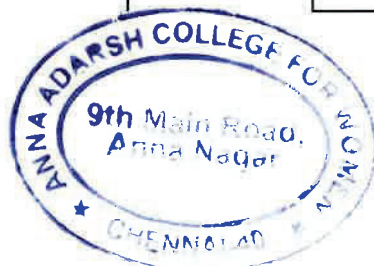 ANNA ADARSH COLLEGE FOR WOMEN
9th Main Road,
Anna Nagar
★ CHENNAI-40 ★